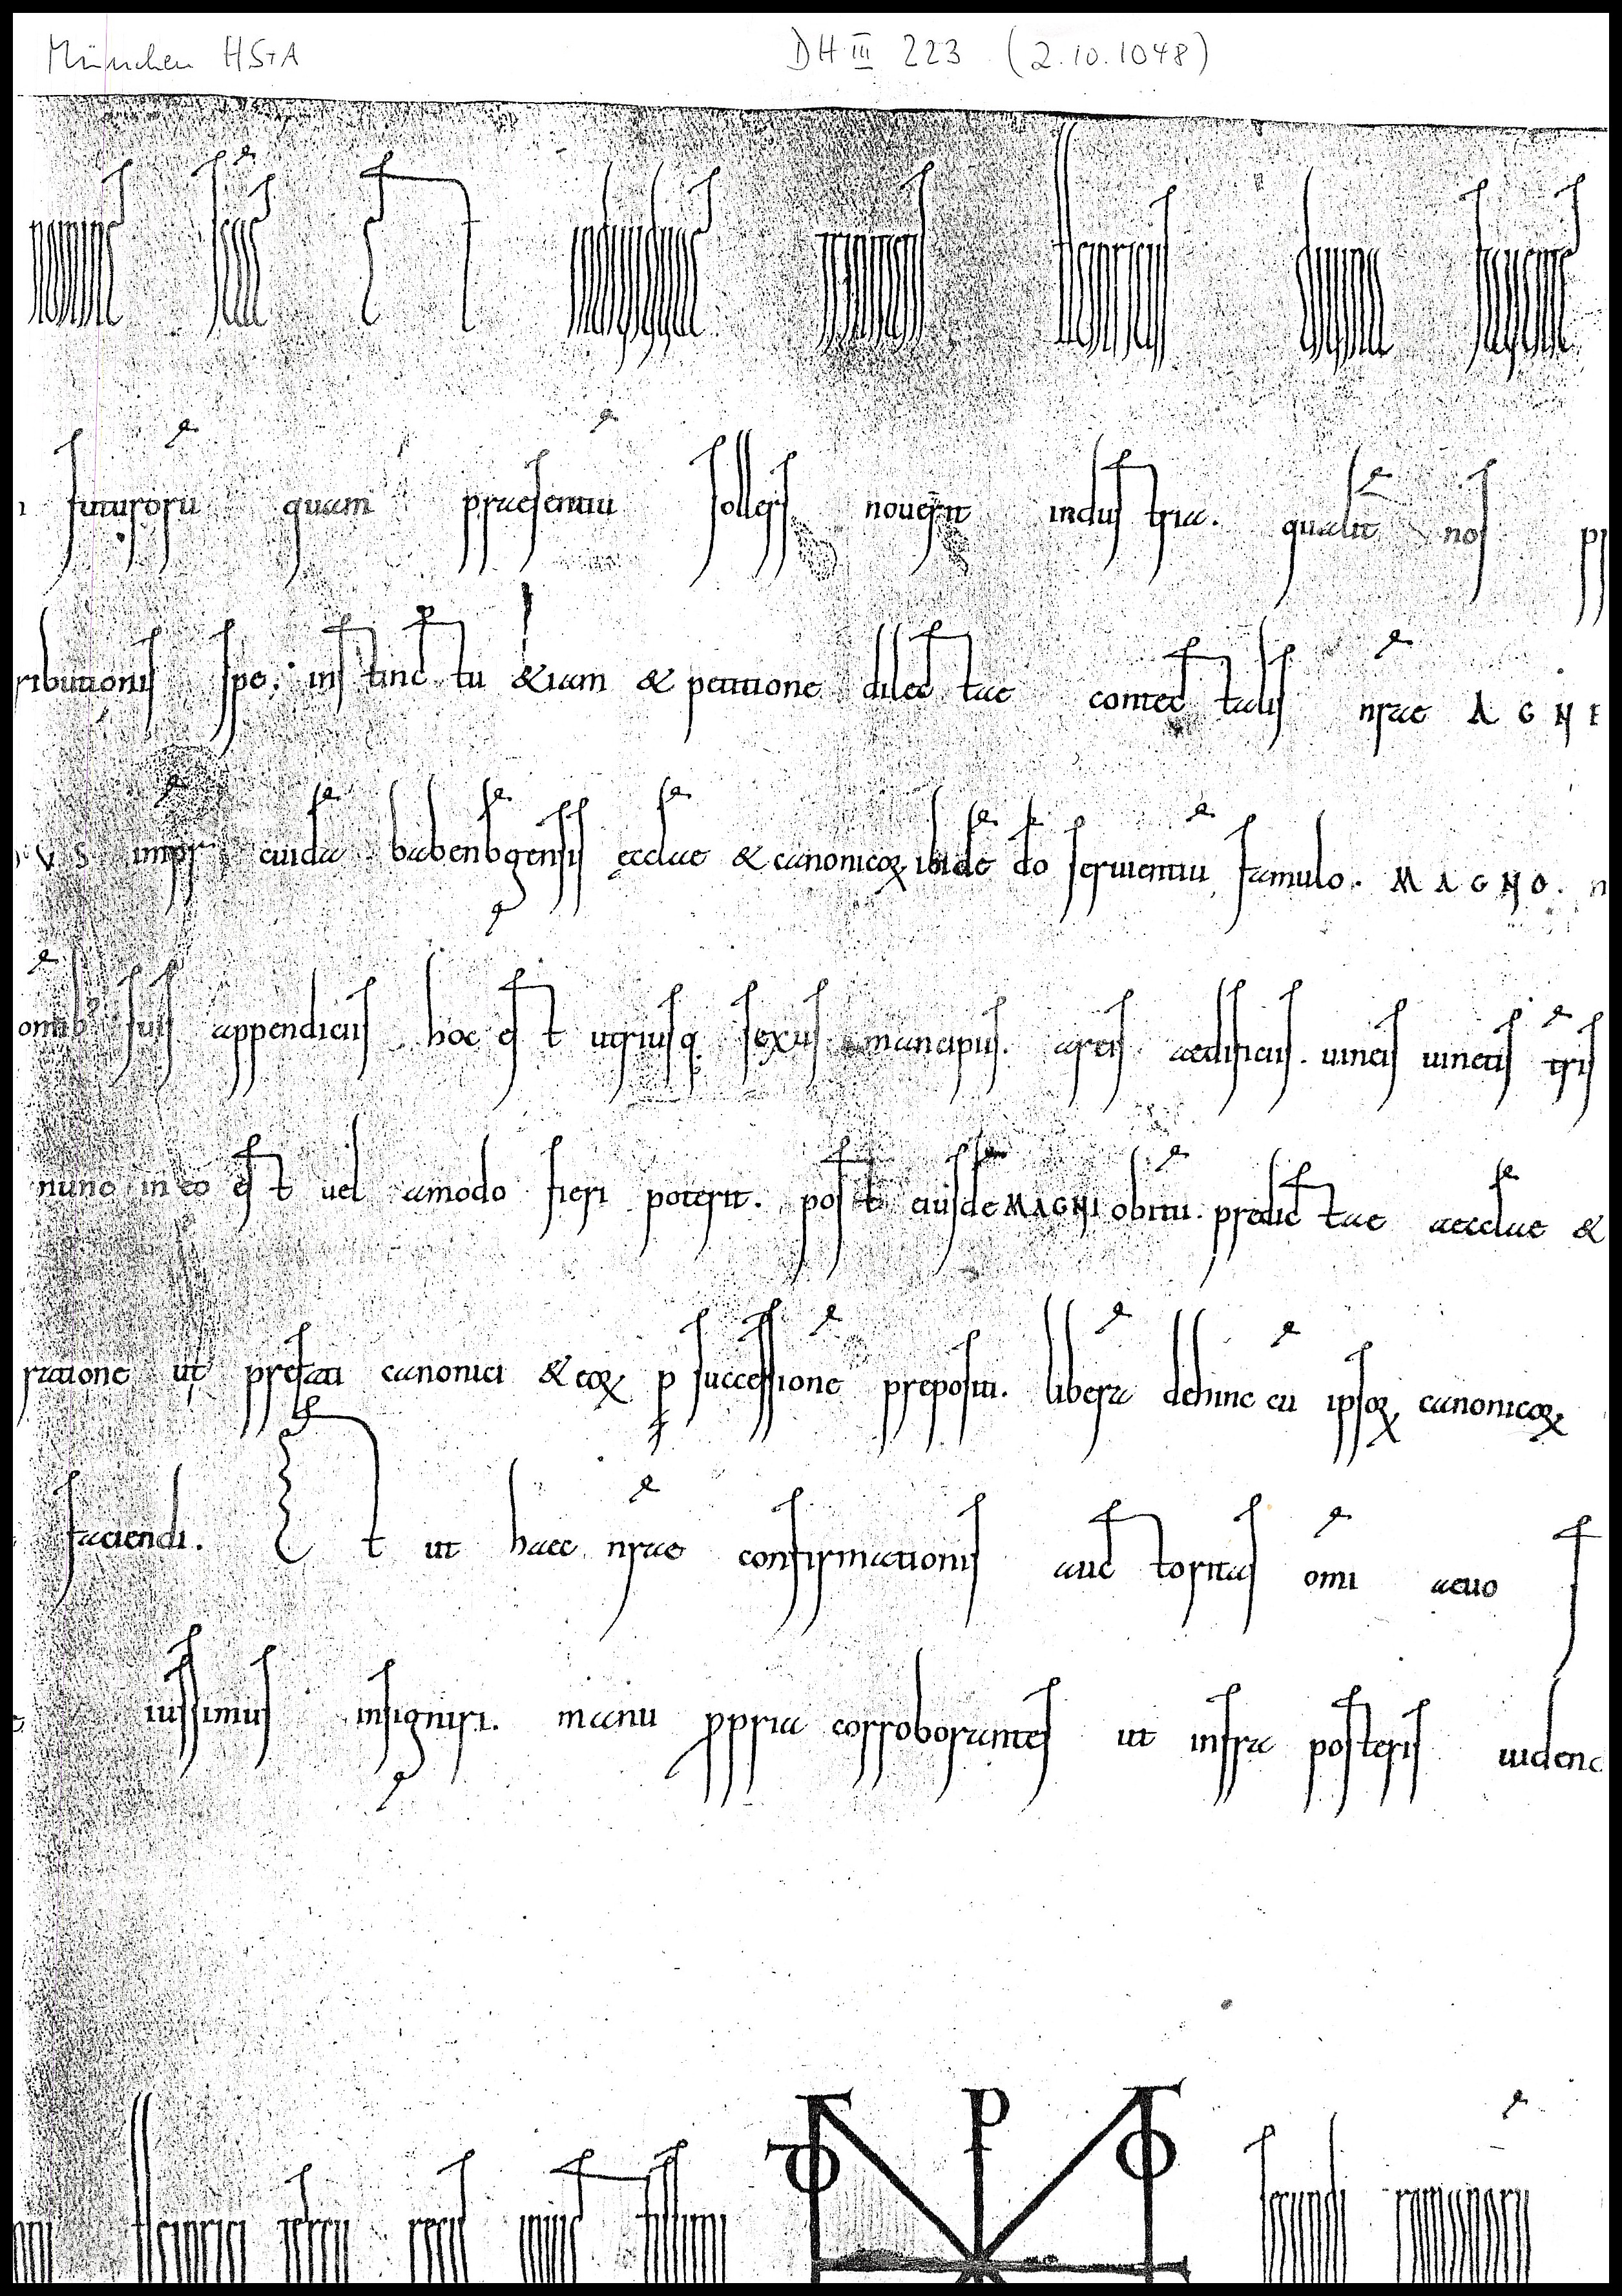 München HStA DH III 223 (2.10.1048)
nomine scae et indiuiduae trinitatis Heinricus diuina fauente
futuroru quam praesentiu sollers nouerit industria. qualit nos
ributionis spe. instinctu &iam & petitione dilectae contectalis nrae AGNE
VS impr cuida babenbgensis ęcclae & canonicoꝝ ibide do seruientiu famulo. MAGNO.
omib suis appendiciis hoc est utriusq sexus mancipiis. areis aedificiis. uineis uinetis tris
nunc in eo est uel amodo fieri poterit. post eiusde MAGNI obitu. predictae aecclae &
ratione ut prefati canonici & eoꝝ p successione prepositi. libera dehinc eu ipsoꝝ canonicoꝝ
faciendi. Et ut haec nrae confirmationis auctoritas omi aeuo
iussimus insigniri. manu ppria corroborantes ut infra posteris uidenc
Heinrici tercii regis inuictissimi secundi romanoru